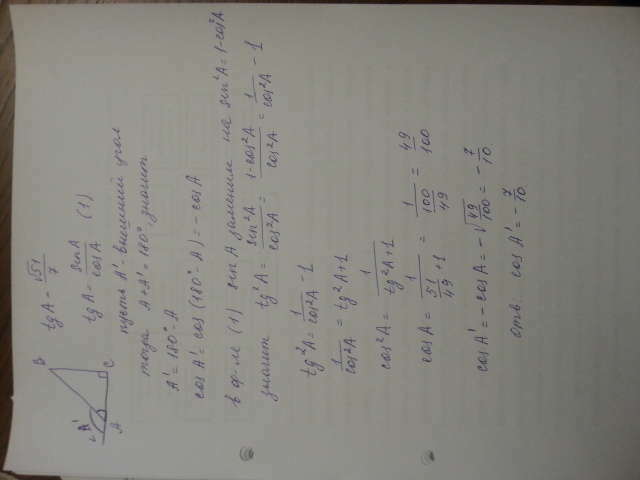 B
A'
A
C
tg A = √51/7
tg A = sin A/cos A (1)
пусть A' - внешний угол
тогда A + A' = 180°, значит
A' = 180° - A
cos A' = cos (180° - A) = - cos A
в ф-ле (1) sin A заменим на sin²A = 1 - cos²A
значит tg²A = sin²A/cos²A = 1 - cos²A/cos²A = 1/cos²A - 1
tg²A = 1/cos²A - 1
1/cos²A = tg²A + 1
cos²A = 1/tg²A + 1
cos A = 1/(51/49 + 1) = 1/(100/49) = 49/100
cos A' = - cos A = - √49/100 = - 7/10
отв. cos A' = - 7/10